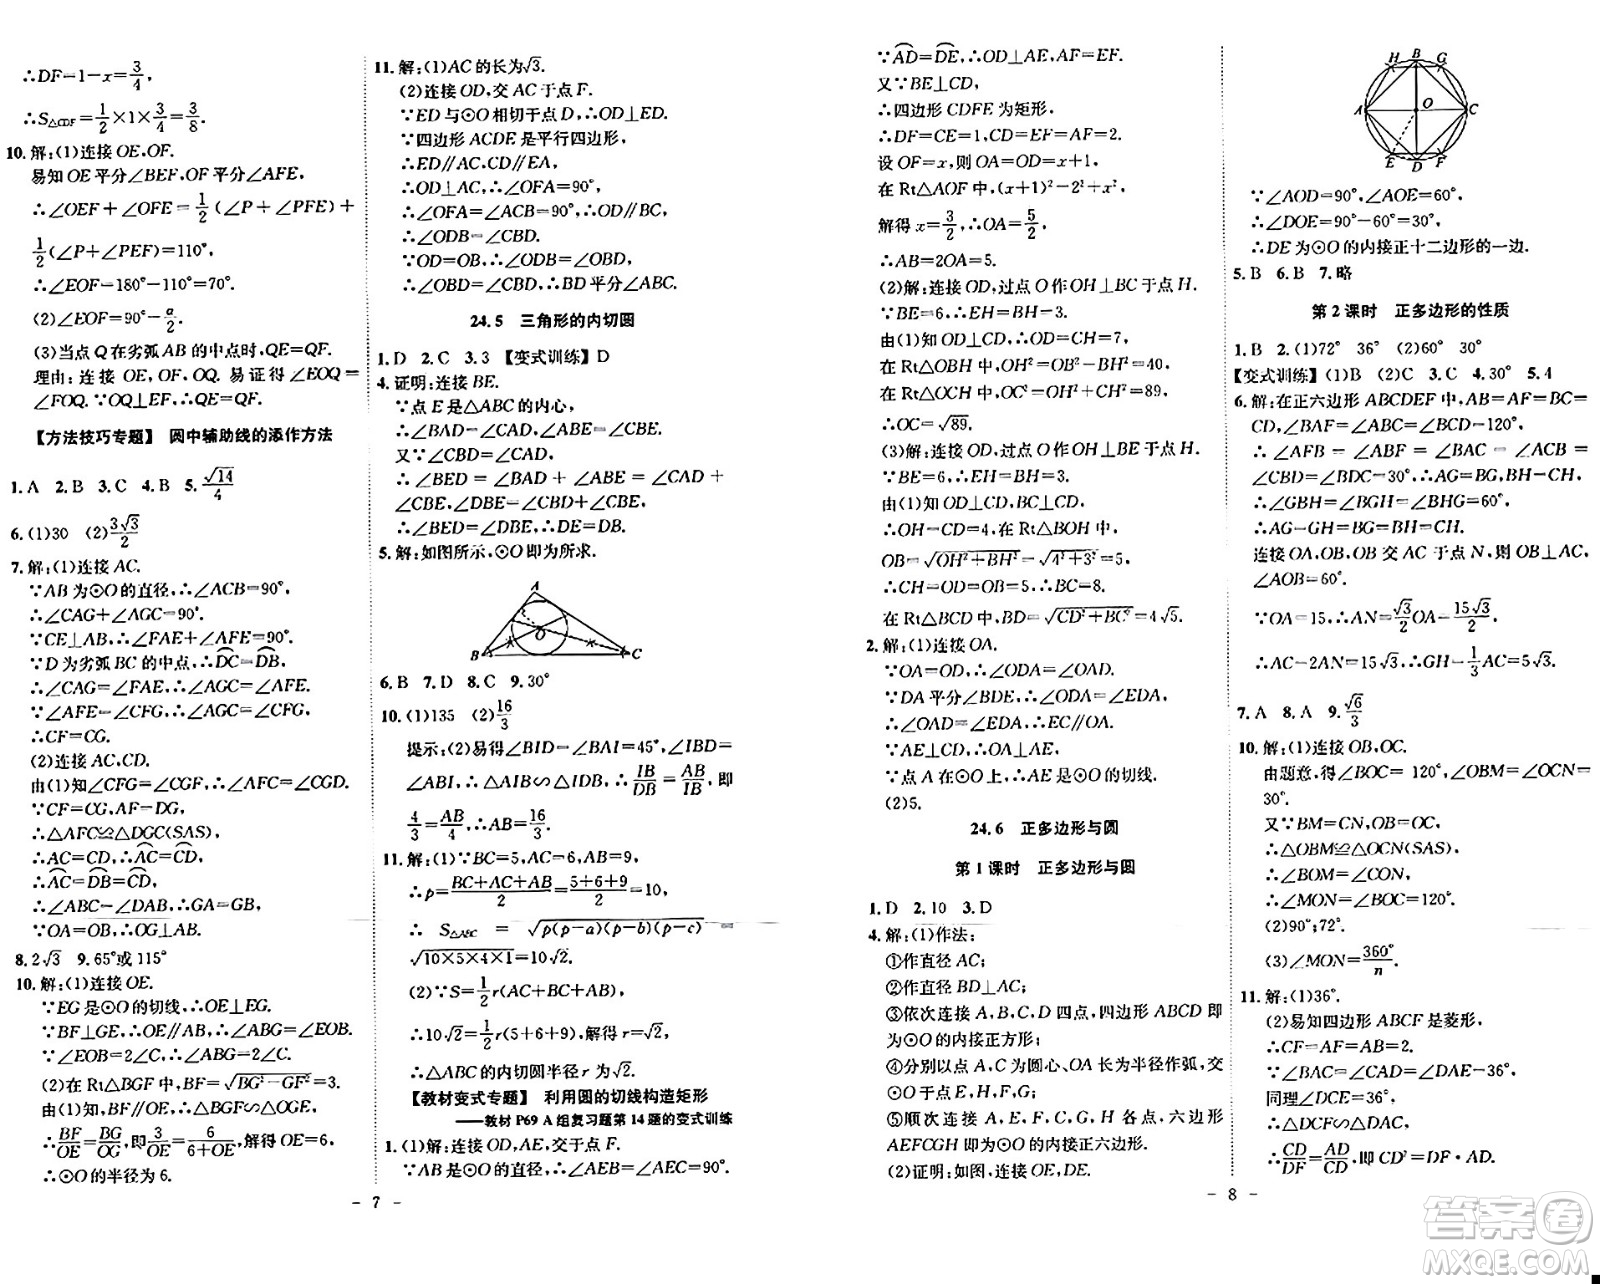 ∴DF=1-x=3/4,
∴S△CDF=1/2×1×3/4=3/8.
10. 解:(1)连接 OE,OF.
易知 OE 平分∠BEF,OF 平分∠AFE,
∴∠OEF+∠OFE=1/2(∠P+∠PFE)+
1/2(∠P+∠PEF)=110°,
∴∠EOF=180°-110°=70°.
(2)∠EOF=90°-α/2
(3)当点 Q 在劣弧 AB 的中点时,QE=QF.
理由:连接 OE,OF,OQ. 易证得∠EOQ=
∠FOQ. ∵OQ⊥EF,∴QE=QF.
【方法技巧专题】 圆中辅助线的添作方法
1. A 2. B 3. C 4. B 5. √14/4
6. (1)30 (2)3√3/2
7. 解:(1)连接 AC.
∵AB 为⊙O 的直径,∴∠ACB=90°,
∴∠CAG+∠AGC=90°.
∵CE⊥AB,∴∠FAE+∠AFE=90°.
∵D 为劣弧 BC 的中点,∴DC=DB,
∴∠CAG=∠FAE,∴∠AGC=∠AFE.
∵∠AFE=∠CFG,∴∠AGC=∠CFG.
∴CF=CG.
(2)连接 AC,CD.
由(1)知∠CFG=∠CGF,∴∠AFC=∠CGD.
∵CF=CG,AF=DG,
∴△AFC≌△DGC(SAS)
∴AC=CD,∴AC=CD,
∴AC=DB=CD,
∴∠ABC=∠DAB,∴GA=GB,
∵OA=OB,∴OG⊥AB.
8. 2√3 9. 65°或 115°
10. 解:(1)连接 OE.
∵EG 是⊙O 的切线,∴OE⊥EG.
∵BF⊥GE,∴OE∥AB,∴∠ABG=∠EOB.
∵∠EOB=2∠C,∴∠ABG=2∠C.
(2)在 Rt△BGF 中,BF=√BG²-GF²=3.
由(1)知,BF∥OE,∴△BGF∽△OGE,
∴BF/OE=BG/OG,即3/OE=6/(6+OE),解得 OE=6,
∴⊙O 的半径为 6.
11. 解:(1)AC 的长为√3.
(2)连接 OD,交 AC 于点 F.
∵ED 与⊙O 相切于点 D,∴OD⊥ED.
∵四边形 ACDE 是平行四边形,
∴ED∥AC,CD∥EA,
∴OD⊥AC,∴∠OFA=90°,
∴∠OFA=∠ACB=90°,∴OD∥BC,
∴∠ODB=∠CBD.
∵OD=OB,∴∠ODB=∠OBD,
∴∠OBD=∠CBD,∴BD 平分∠ABC.
24.5 三角形的内切圆
1. D 2. C 3. 3 【变式训练】D
4. 证明:连接 BE.
∵点 E 是△ABC 的内心,
∴∠BAD=∠CAD,∠ABE=∠CBE.
又∵∠CBD=∠CAD,
∴∠BED = ∠BAD + ∠ABE = ∠CAD +
∠CBE,∠DBE=∠CBD+∠CBE,
∴∠BED=∠DBE,∴DE=DB.
5. 解:如图所示,⊙O 即为所求.
A
O
B
C
6. B 7. D 8. C 9. 30°
10. (1)135 (2)16/3
提示:(2)易得∠BID=∠BAI=45°,∠IBD=
∠ABI,∴△AIB∽△IDB,∴IB/DB=AB/IB,即
4/3=AB/4,∴AB=16/3.
11. 解:(1)∵BC=5,AC=6,AB=9,
∴p=(BC+AC+AB)/2=(5+6+9)/2=10,
∴ S△ABC = √p(p-a)(p-b)(p-c) =
√10×5×4×1=10√2.
(2)∵S=1/2r(AC+BC+AB),
∴10√2=1/2r(5+6+9),解得 r=√2,
∴△ABC 的内切圆半径 r 为√2.
【教材变式专题】 利用圆的切线构造矩形
——教材 P69 A 组复习题第 14 题的变式训练
1. (1)解:连接 OD,AE,交于点 F.
∵AB 是⊙O 的直径,∴∠AEB=∠AEC=90°.
- 7 -
∵AD=DE,∴OD⊥AE,AF=EF.
又∵BE⊥CD,
∴四边形 CDFE 为矩形,
∴DF=CE=1,CD=EF=AF=2.
设 OF=x,则 OA=OD=x+1,
在 Rt△AOF 中,(x+1)²=2²+x²,
解得 x=3/2,∴OA=5/2,
∴AB=2OA=5.
(2)解:连接 OD,过点 O 作 OH⊥BC 于点 H.
∵BE=6,∴EH=BH=3.
由(1)知 OD⊥CD,∴OH=CD=4,
在 Rt△OBH 中,OH²=OB²-BH²=80,
在 Rt△OCH 中,OC²=OH²+CH²=89,
∴OC=√89.
(3)解:连接 OD,过点 O 作 OH⊥BC 于点 H.
∵BE=6,∴EH=BH=3.
由(1)知 OD⊥CD,BC⊥CD,
∴OH=CD=4,在 Rt△BOH 中,
OB=√OH²+BH²=√4²+3²=5,
∴CH=OD=OB=5,∴BC=8.
在 Rt△BCD 中,BD=√CD²+BC²=4√5.
2. 解:(1)连接 OA.
∵OA=OD,∴∠ODA=∠OAD.
∵DA 平分∠BDE,∴∠ODA=∠EDA,
∴∠OAD=∠EDA,∴EC∥OA.
∵AE⊥CD,∴OA⊥AE.
∵点 A 在⊙O 上,∴AE 是⊙O 的切线.
(2)5.
24.6 正多边形与圆
第 1 课时 正多边形与圆
1. D 2. 10 3. D
4. 解:(1)作法:
①作直径 AC;
②作直径 BD⊥AC;
③依次连接 A,B,C,D 四点,四边形 ABCD 即
为⊙O 的内接正方形;
④分别以点 A,C 为圆心,OA 长为半径作弧,交
⊙O 于点 E,H,F,G;
⑤顺次连接 A,E,F,C,G,H 各点,六边形
AEFCGH 即为⊙O 的内接正六边形.
(2)证明:如图,连接 OE,DE.
H B G
A O C
E D F
∵∠AOD=90°,∠AOE=60°,
∴∠DOE=90°-60°=30°,
∴DE 为⊙O 的内接正十二边形的一边.
5. B 6. B 7. 略
第 2 课时 正多边形的性质
1. B 2. (1)72° 36° (2)60° 30°
【变式训练】(1)B (2)C 3. C 4. 30° 5. 4
6. 解:在正六边形 ABCDEF 中,AB=AF=BC=
CD,∠BAF=∠ABC=∠BCD=120°,
∴ ∠AFB = ∠ABF = ∠BAC = ∠ACB =
∠CBD=∠BDC=30°,∴AG=BG,BH=CH,
∴∠GBH=∠BGH=∠BHG=60°,
∴AG=GH=BG=BH=CH.
连接 OA,OB,OB 交 AC 于点 N,则 OB⊥AC,
∠AOB=60°.
∵OA=15,∴AN=√3/2OA=15√3/2,
∴AC=2AN=15√3,∴GH=1/3AC=5√3.
7. A 8. A 9. √6/3
10. 解:(1)连接 OB,OC.
由题意,得∠BOC=120°,∠OBM=∠OCN=
30°.
又∵BM=CN,OB=OC,
∴△OBM≌△OCN(SAS),
∴∠BOM=∠CON,
∴∠MON=∠BOC=120°.
(2)90° 72°
(3)∠MON=360°/n.
11. 解:(1)36°.
(2)易知四边形 ABCF 是菱形,
∴CF=AF=AB=CB.
∴∠BAC=∠CAD=36°.
同理∠DCF=36°,
∴△CDF∽△DAC,
∴CD/DF=AD/CD,即 CD²=DF·AD.
- 8 -
答案圈
MXQE.COM